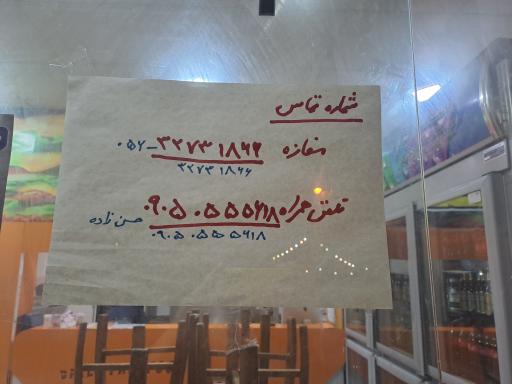 شماره تماس
مغازه ۳۲۷۳۱۸۶۶-۰۵۶
۳۲۷۳۱۸۶۶
تلفن همراه ۰۹۰۵۰۵۵۵۶۱۸ حسن زاده
۰۹۰۵۰۵۵۵۶۱۸